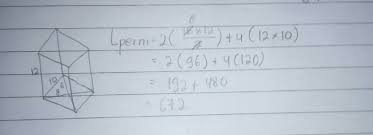 Lperm = 2(16×12/2) + 4(12×10)
= 2(96) + 4(120)
= 192 + 480
= 672
12
10
6
8